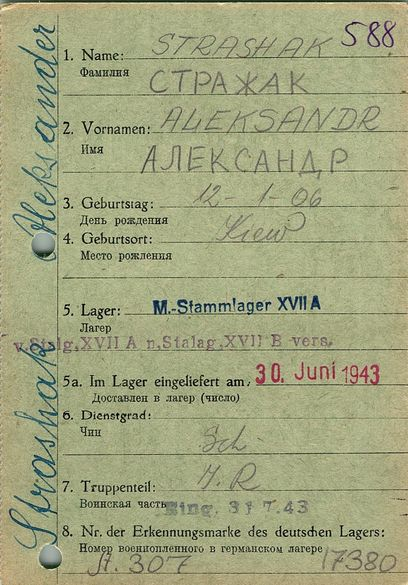 Strashak Aleksander
588
1. Name: STRASHAK
Фамилия СТРАЖАК
2. Vornamen: ALEKSANDR
Имя АЛЕКСАНДР
3. Geburtstag: 12-1-06
День рождения
4. Geburtsort: Kiew
Место рождения
5. Lager: M.-Stammlager XVII A
Лагерь
v. Stalg. XVII A n. Stalag. XVII B vers.
5a. Im Lager eingeliefert am, 30. Juni 1943
Доставлен в лагер (число)
6. Dienstgrad:
Чин
7. Truppenteil: J. R
Воинская часть Eing. 31 7. 43
8. Nr. der Erkennungsmarke des deutschen Lagers:
Номер военнопленного в германском лагере
St. 307 17380